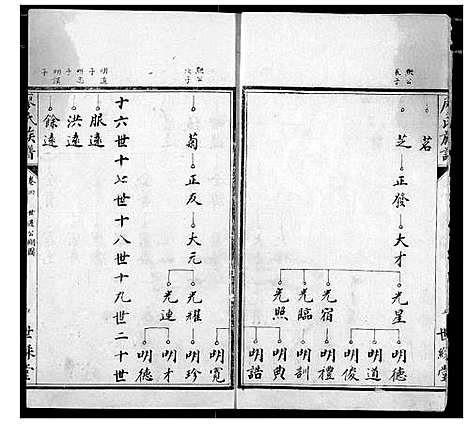 廖氏族譜
世綵堂
熙公長子
茗
芝 正發 大才
光星 光宿 光臨 光照
明德 明道 明俊 明禮 明訓 明典 明誥
熙公次子
菊 正反 大元
光耀 光連
明寬 明珍 明才 明德
十六世 十七世 十八世 十九世 二十世
明道子
服遠
洪遠
餘遠
廖氏族譜
卷四
世綵堂